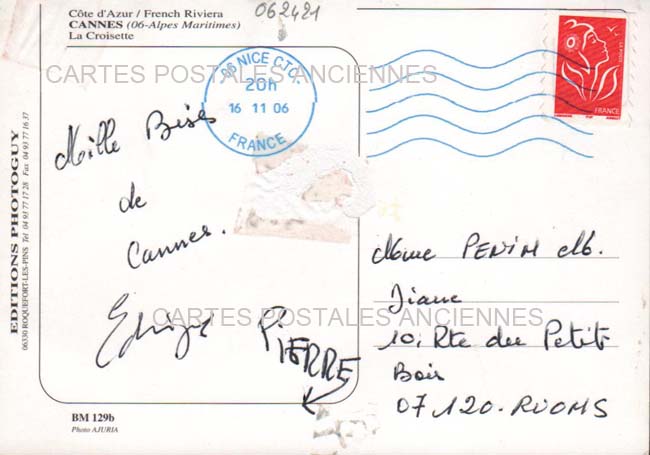 Côte d'Azur / French Riviera
062421
CANNES (06-Alpes Maritimes)
La Croisette
06 NICE C.T.C.
20h
16 11 06
FRANCE
LA POSTE
FRANCE
CARTES POSTALES ANCIENNES
EDITIONS PHOTOGUY
06330 ROQUEFORT-LES-PINS Tel 04 93 77 17 28 Fax 04 93 77 16 37
Mille Bises
de
Cannes.
PIERRE
Mme PENIM M.
Diane
10, Rte du Petit
Bois
07120 - RUOMS
CARTES POSTALES ANCIENNES
BM 129b
Photo AJURIA